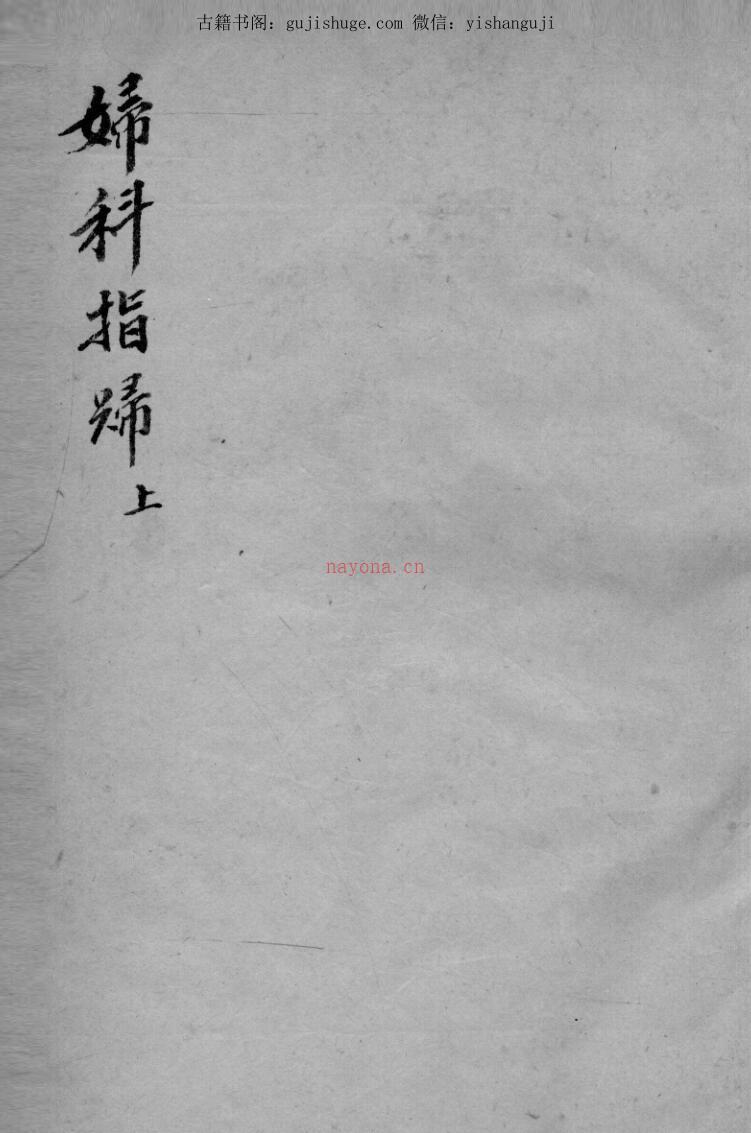 古籍书阁：gujishuge.com 微信：yishanguji
婦科指歸上
nayona.cn